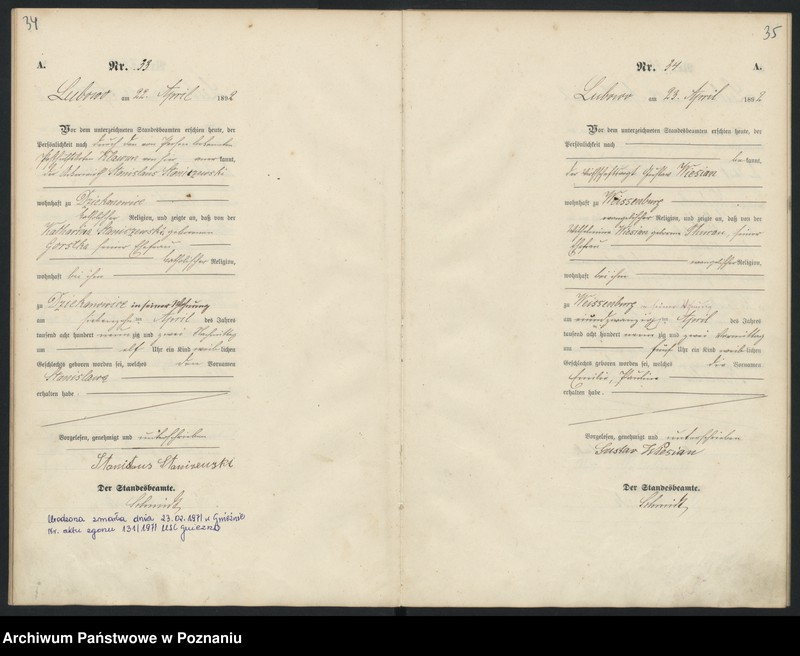 34
A.
Nr. 33
Lubowo am 22. April 1892
Vor dem unterzeichneten Standesbeamten erschien heute, der
Persönlichkeit nach durch den von Person bekannten
von hier anerkannt,
der Stanislaus Staniszewski
wohnhaft zu Dziekanowice
katholischer Religion, und zeigte an, daß von der
Katharina Staniszewska geborenen
Gorstka seiner Ehefrau,
katholischer Religion,
wohnhaft bei ihm
zu Dziekanowice in seiner Wohnung
am April des Jahres
tausend acht hundert neunzig und zwei Nachmittag
um elf Uhr ein Kind weiblichen
Geschlechts geboren worden sei, welches den Vornamen
Stanislawa
erhalten habe
Vorgelesen, genehmigt und unterschrieben
Stanislaus Staniszewski
Der Standesbeamte.
Schmidt
Urodzona zmarła dnia 23.02.1971 w Gnieźnie
Nr. aktu zgonu 131/1971 USC Gniezno
35
Nr. 34
A.
Lubowo am 23. April 1892
Vor dem unterzeichneten Standesbeamten erschien heute, der
Persönlichkeit nach
bekannt,
der Gustav Wiesian
wohnhaft zu Weissenburg
evangelischer Religion, und zeigte an, daß von der
Wilhelmine Wiesian geborene seiner
Ehefrau
evangelischer Religion,
wohnhaft bei ihm
zu Weissenburg in seiner Wohnung
am einundzwanzigsten April des Jahres
tausend acht hundert neunzig und zwei Vormittag
um fünf Uhr ein Kind weiblichen
Geschlechts geboren worden sei, welches die Vornamen
Emilie, Pauline
erhalten habe
Vorgelesen, genehmigt und unterschrieben
Gustav Wiesian
Der Standesbeamte.
Schmidt
Archiwum Państwowe w Poznaniu